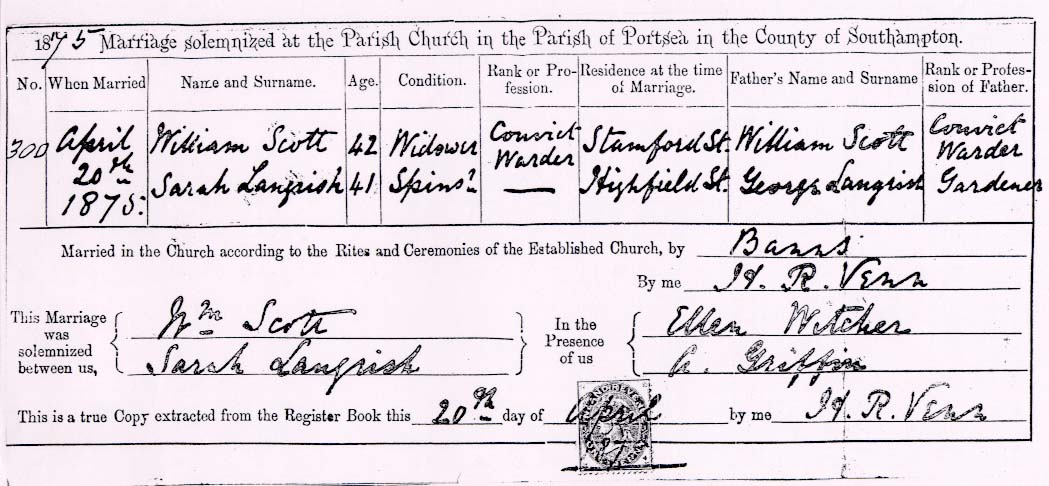 1875 Marriage solemnized at the Parish Church in the Parish of Portsea in the County of Southampton.
No. When Married Name and Surname. Age. Condition. Rank or Profession. Residence at the time of Marriage. Father's Name and Surname Rank or Profession of Father.
300 April 20th 1875. William Scott 42 Widower Convict Warder Stamford St. William Scott Convict Warder
Sarah Langrish 41 Spinsr — Highfield St. George Langrish Gardener
Married in the Church according to the Rites and Ceremonies of the Established Church, by Banns
By me H. R. Venn
This Marriage was solemnized between us, { Wm Scott } In the Presence of us { Ellen Witcher
Sarah Langrish A. Griffin
This is a true Copy extracted from the Register Book this 20th day of April by me H. R. Venn